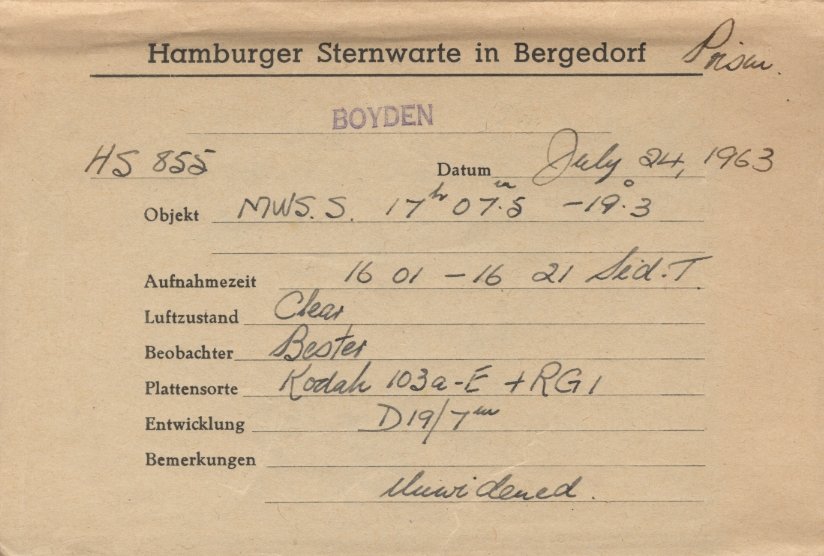 Hamburger Sternwarte in Bergedorf Prism.
BOYDEN
HS 855 Datum July 24, 1963
Objekt MWS. S. 17h 07.m5 -19°.3
Aufnahmezeit 16 01 - 16 21 Sid. T.
Luftzustand Clear
Beobachter Bester
Plattensorte Kodak 103a-E + RG1
Entwicklung D19/7m
Bemerkungen
Unwidened.